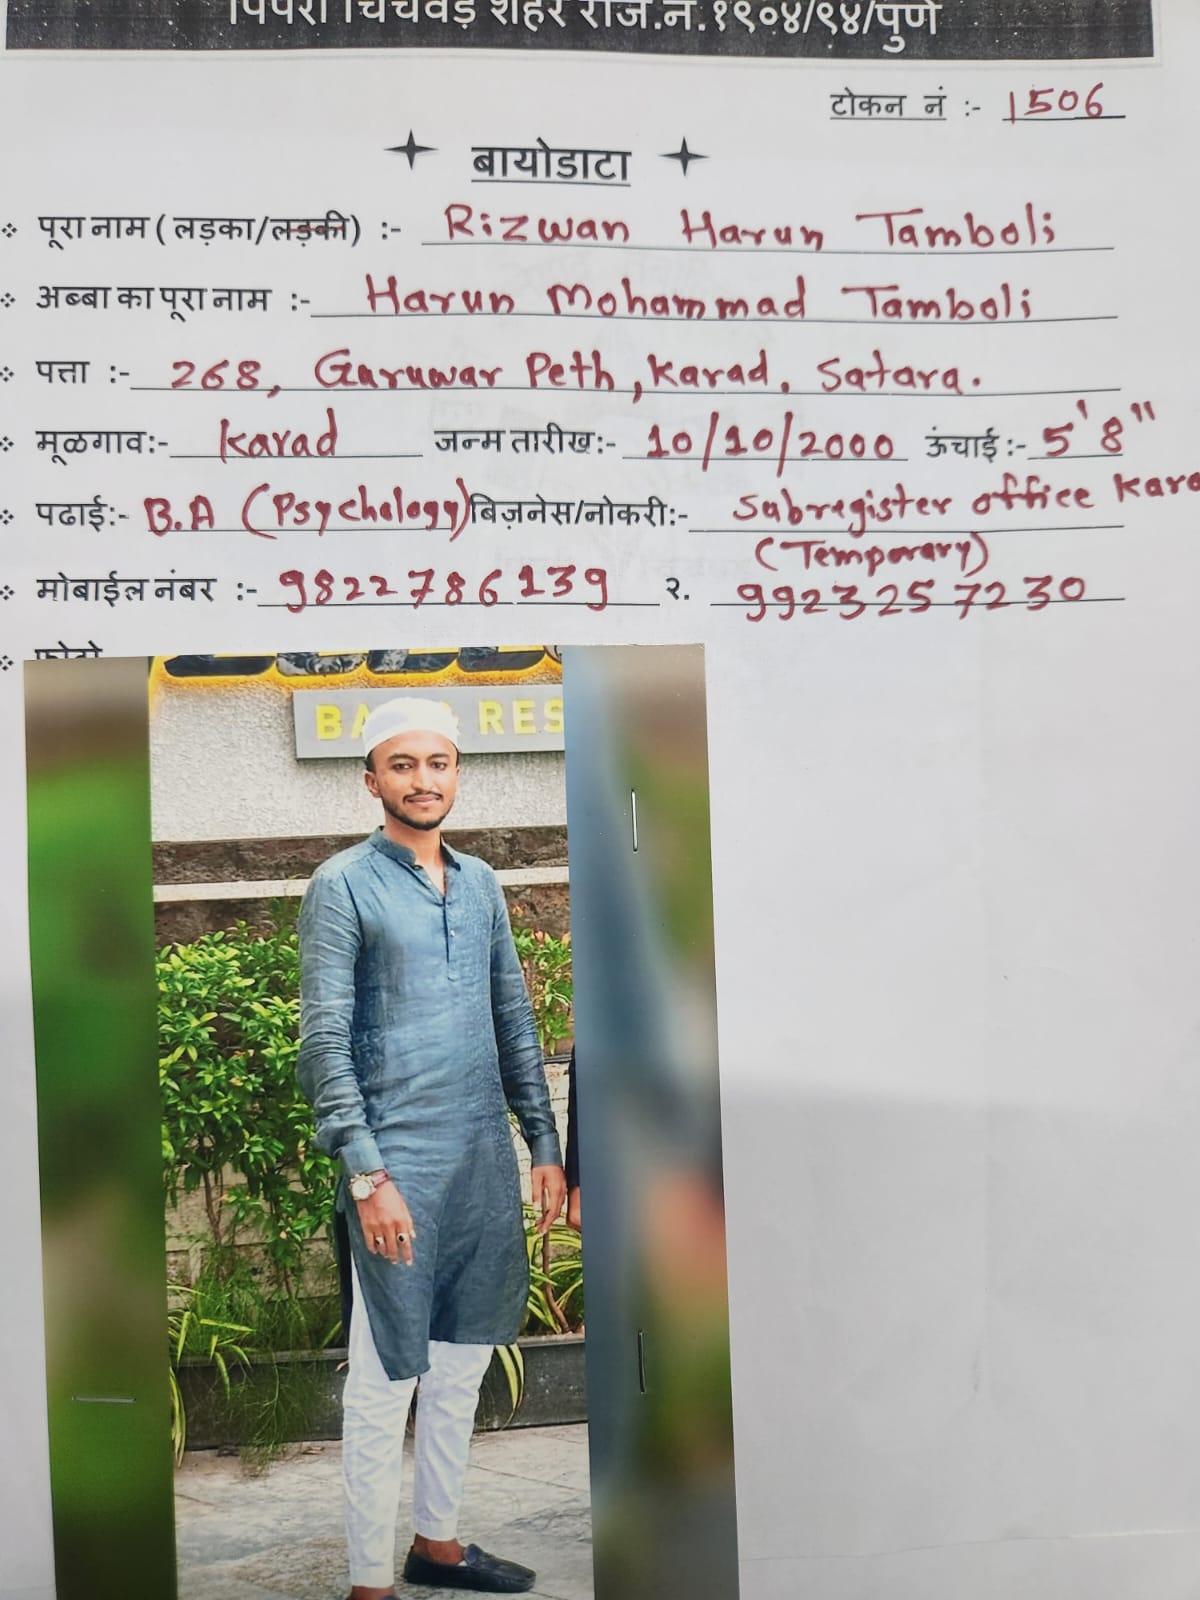 पिंपरी चिंचवड शहर रजि.नं.१९०४/९४/पुणे
टोकन नं :- 1506
बायोडाटा
पूरा नाम ( लड़का/लड़की) :- Rizwan Harun Tamboli
अब्बा का पूरा नाम :- Harun Mohammad Tamboli
पत्ता :- 268, Guruwar Peth, Karad, Satara.
मूळगाव:- Karad जन्म तारीख:- 10/10/2000 ऊंचाई:- 5'8"
पढाई:- B.A (Psychology) बिज़नेस/नोकरी:- Subregister office
(Temporary)
मोबाईल नंबर :- 9822786139 २. 9923257230
फोटो
RES